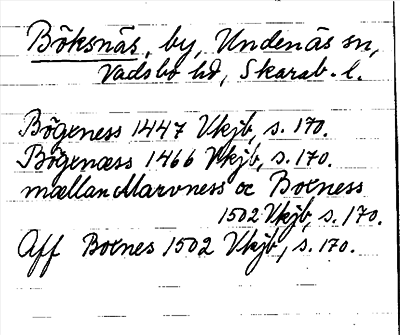 Böksnäs, by, Undenäs sn,
Vadsbo hd, Skarab. l.
Bögeness 1447 Vkjb, s. 170.
Bögenæss 1466 Vkjb, s. 170.
mællan Marvness oc Boeness
1502 Vkjb, s. 170.
Aff Boenes 1502 Vkjb, s. 170.